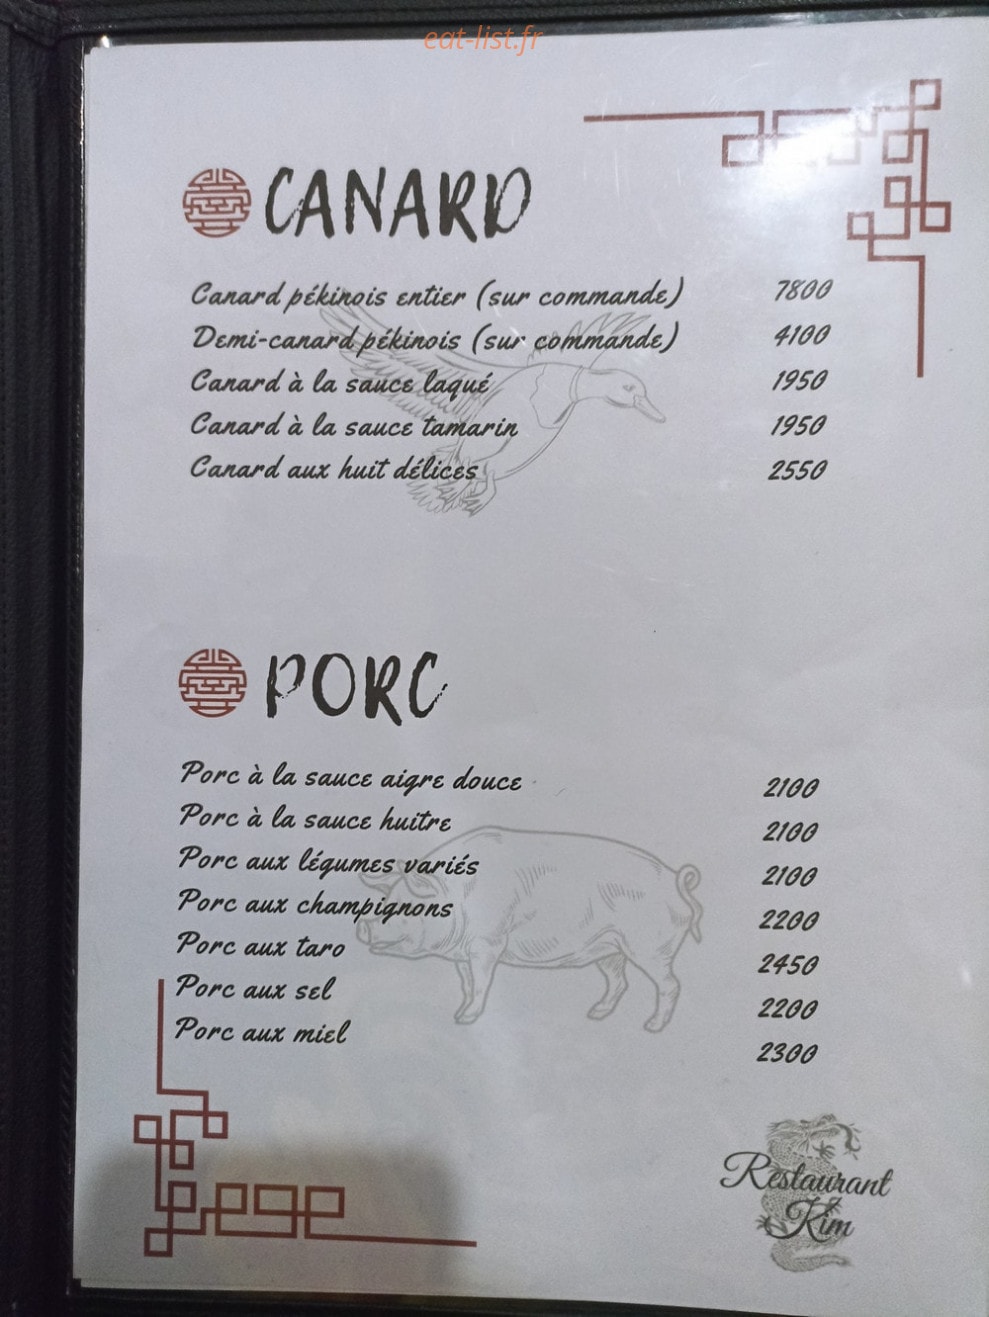 eat-list.fr
CANARD
Canard pékinois entier (sur commande) 7800
Demi-canard pékinois (sur commande) 4100
Canard à la sauce laqué 1950
Canard à la sauce tamarin 1950
Canard aux huit délices 2550
PORC
Porc à la sauce aigre douce 2100
Porc à la sauce huitre 2100
Porc aux légumes variés 2100
Porc aux champignons 2200
Porc aux taro 2450
Porc aux sel 2200
Porc aux miel 2300
Restaurant
Kim